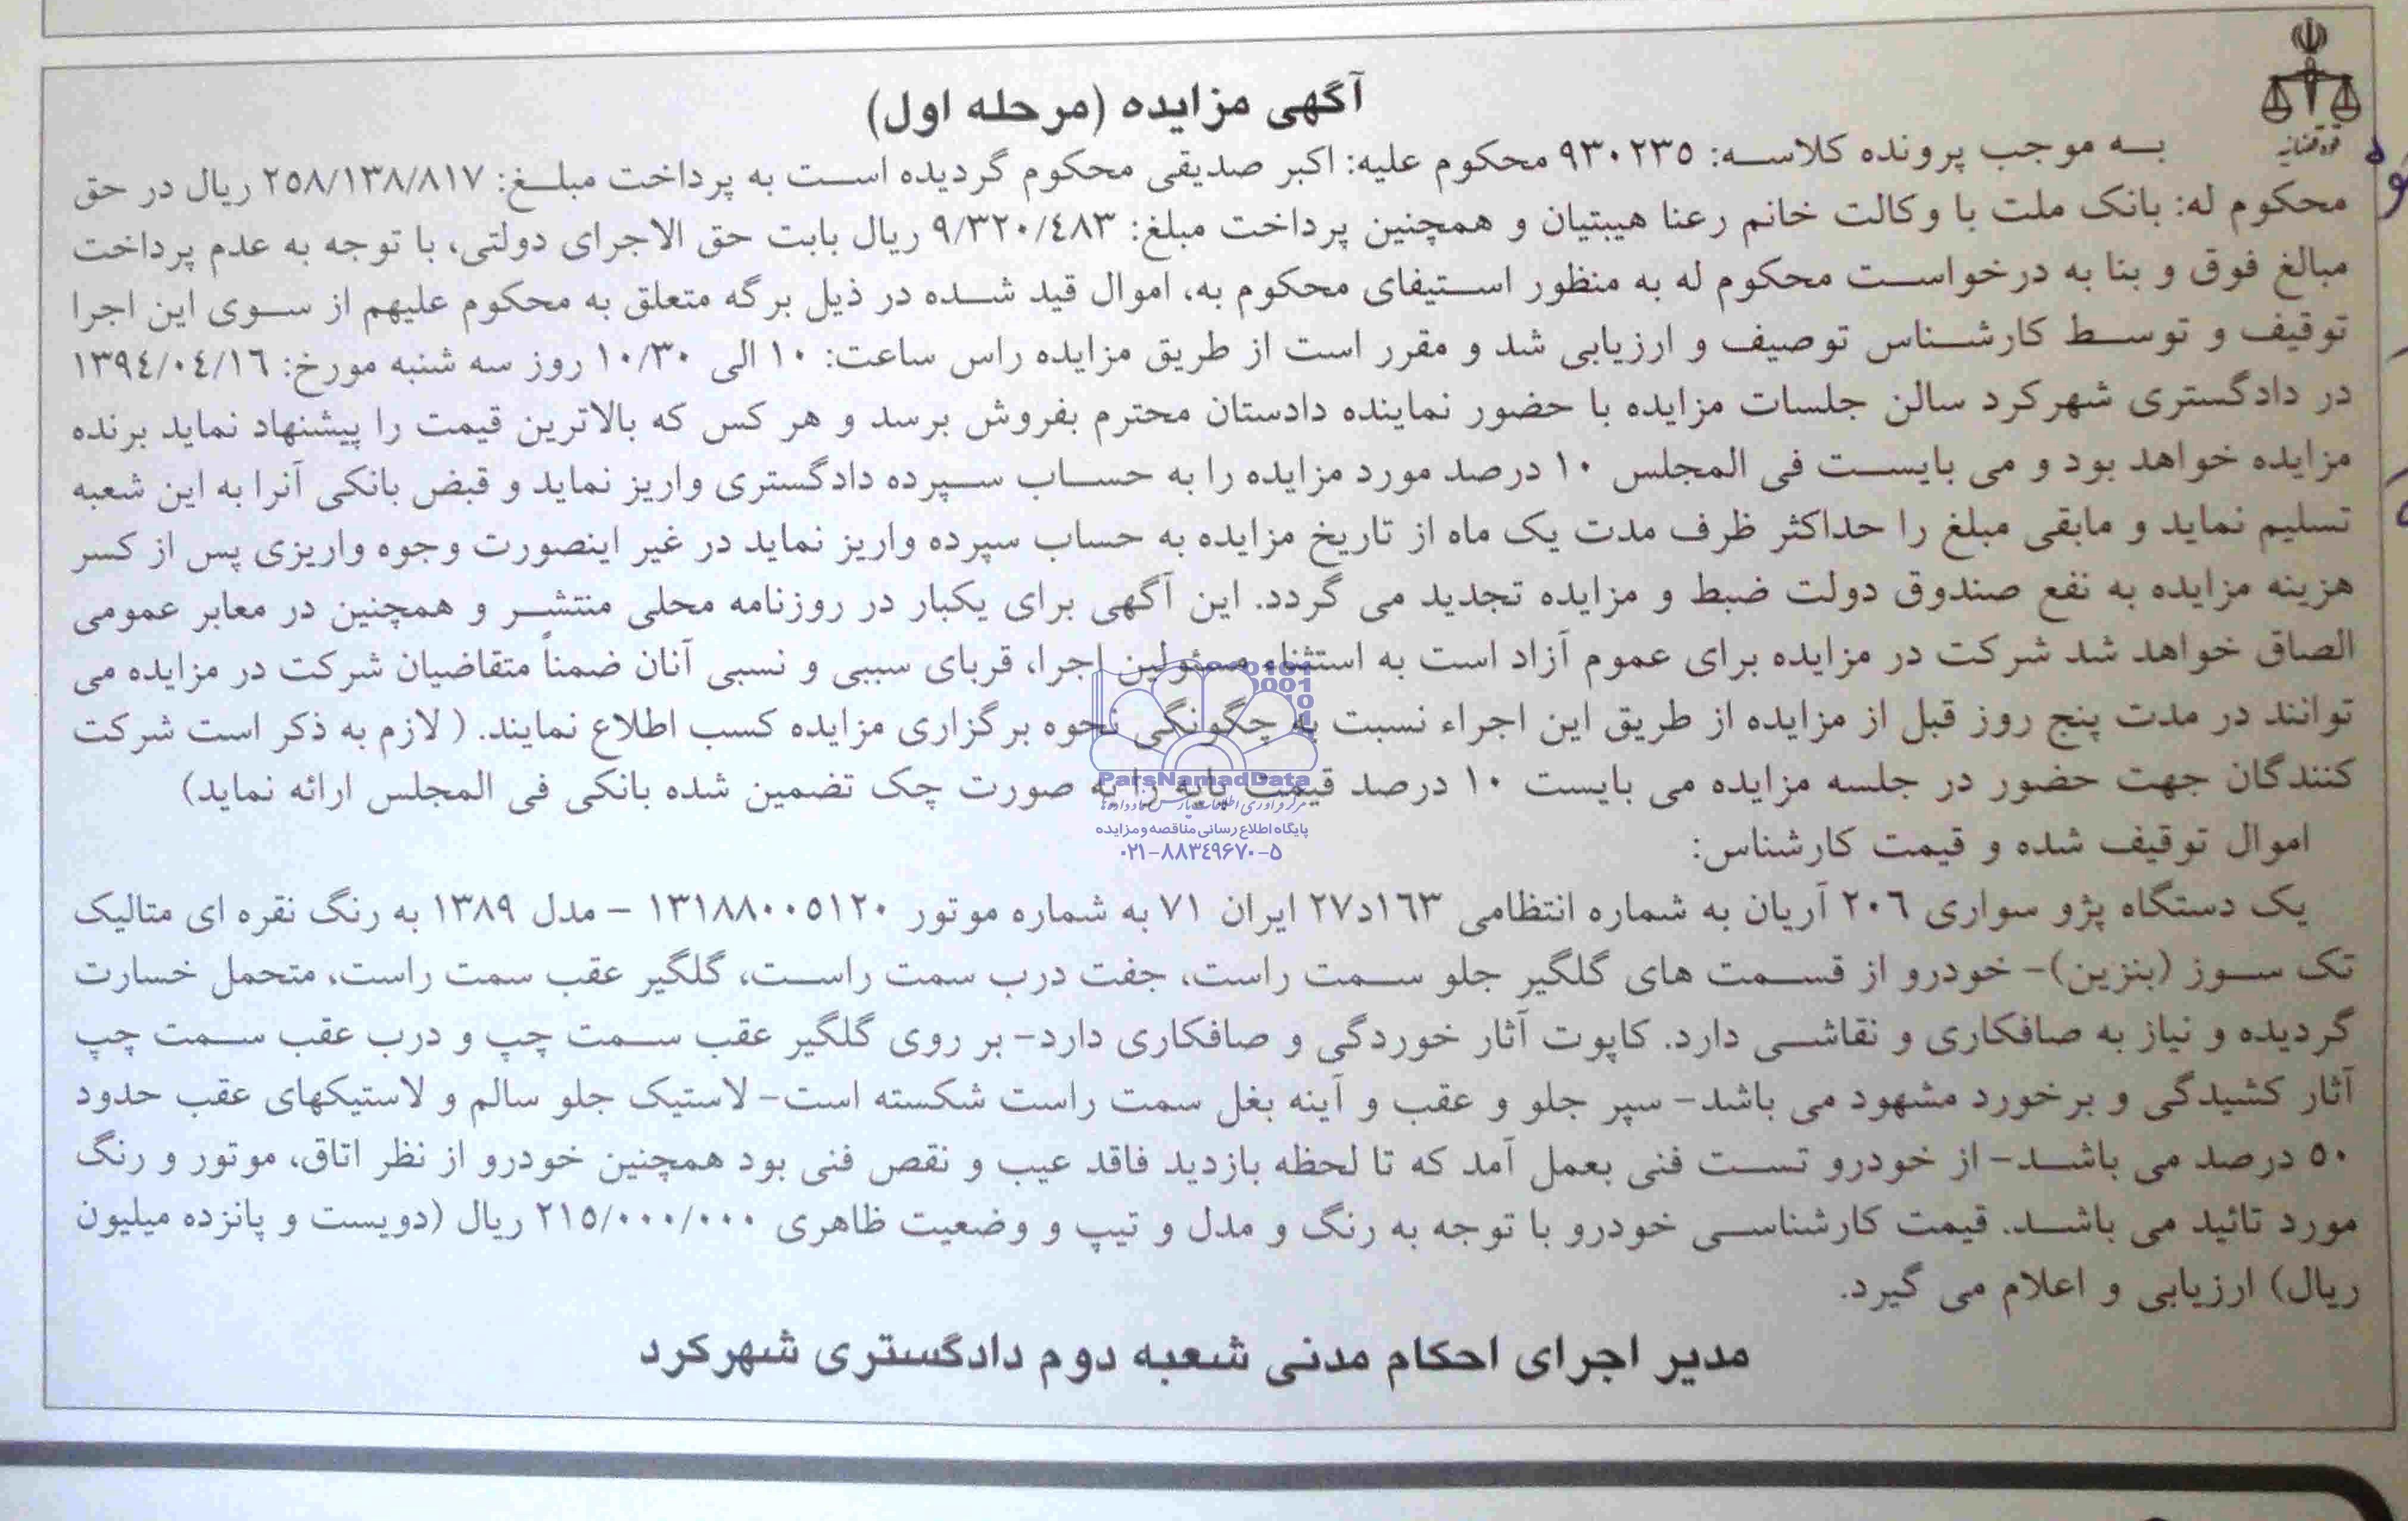 آگهی مزایده (مرحله اول)
قوه قضائیه
به موجب پرونده کلاسه: ۹۳۰۲۳۵ محکوم علیه: اکبر صدیقی محکوم گردیده است به پرداخت مبلغ: ۲۵۸/۱۳۸/۸۱۷ ریال در حق
محکوم له: بانک ملت با وکالت خانم رعنا هیبتیان و همچنین پرداخت مبلغ: ۹/۳۲۰/۴۸۳ ریال بابت حق الاجرای دولتی، با توجه به عدم پرداخت
مبالغ فوق و بنا به درخواست محکوم له به منظور استیفای محکوم به، اموال قید شده در ذیل برگه متعلق به محکوم علیهم از سوی این اجرا
توقیف و توسط کارشناس توصیف و ارزیابی شد و مقرر است از طریق مزایده راس ساعت: ۱۰ الی ۱۰/۳۰ روز سه شنبه مورخ: ۱۳۹۴/۰۴/۱۶
در دادگستری شهرکرد سالن جلسات مزایده با حضور نماینده دادستان محترم بفروش برسد و هر کس که بالاترین قیمت را پیشنهاد نماید برنده
مزایده خواهد بود و می بایست فی المجلس ۱۰ درصد مورد مزایده را به حساب سپرده دادگستری واریز نماید و قبض بانکی آنرا به این شعبه
تسلیم نماید و مابقی مبلغ را حداکثر ظرف مدت یک ماه از تاریخ مزایده به حساب سپرده واریز نماید در غیر اینصورت وجوه واریزی پس از کسر
هزینه مزایده به نفع صندوق دولت ضبط و مزایده تجدید می گردد. این آگهی برای یکبار در روزنامه محلی منتشر و همچنین در معابر عمومی
الصاق خواهد شد شرکت در مزایده برای عموم آزاد است به استثناء مسئولین اجرا، قربای سببی و نسبی آنان ضمناً متقاضیان شرکت در مزایده می
توانند در مدت پنج روز قبل از مزایده از طریق این اجراء نسبت به چگونگی نحوه برگزاری مزایده کسب اطلاع نمایند. ( لازم به ذکر است شرکت
کنندگان جهت حضور در جلسه مزایده می بایست ۱۰ درصد قیمت پایه را به صورت چک تضمین شده بانکی فی المجلس ارائه نماید)
ParsNamadData
پایگاه اطلاع رسانی مناقصه و مزایده
۰۲۱-۸۸۳۴۹۶۷۰-۵
اموال توقیف شده و قیمت کارشناس:
یک دستگاه پژو سواری ۲۰۶ آریان به شماره انتظامی ۱۶۳د۲۷ ایران ۷۱ به شماره موتور ۱۳۱۸۸۰۰۵۱۲۰ - مدل ۱۳۸۹ به رنگ نقره ای متالیک
تک سوز (بنزین)- خودرو از قسمت های گلگیر جلو سمت راست، جفت درب سمت راست، گلگیر عقب سمت راست، متحمل خسارت
گردیده و نیاز به صافکاری و نقاشی دارد. کاپوت آثار خوردگی و صافکاری دارد- بر روی گلگیر عقب سمت چپ و درب عقب سمت چپ
آثار کشیدگی و برخورد مشهود می باشد- سپر جلو و عقب و آینه بغل سمت راست شکسته است- لاستیک جلو سالم و لاستیکهای عقب حدود
۵۰ درصد می باشد- از خودرو تست فنی بعمل آمد که تا لحظه بازدید فاقد عیب و نقص فنی بود همچنین خودرو از نظر اتاق، موتور و رنگ
مورد تائید می باشد. قیمت کارشناسی خودرو با توجه به رنگ و مدل و تیپ و وضعیت ظاهری ۲۱۵/۰۰۰/۰۰۰ ریال (دویست و پانزده میلیون
ریال) ارزیابی و اعلام می گیرد.
مدیر اجرای احکام مدنی شعبه دوم دادگستری شهرکرد